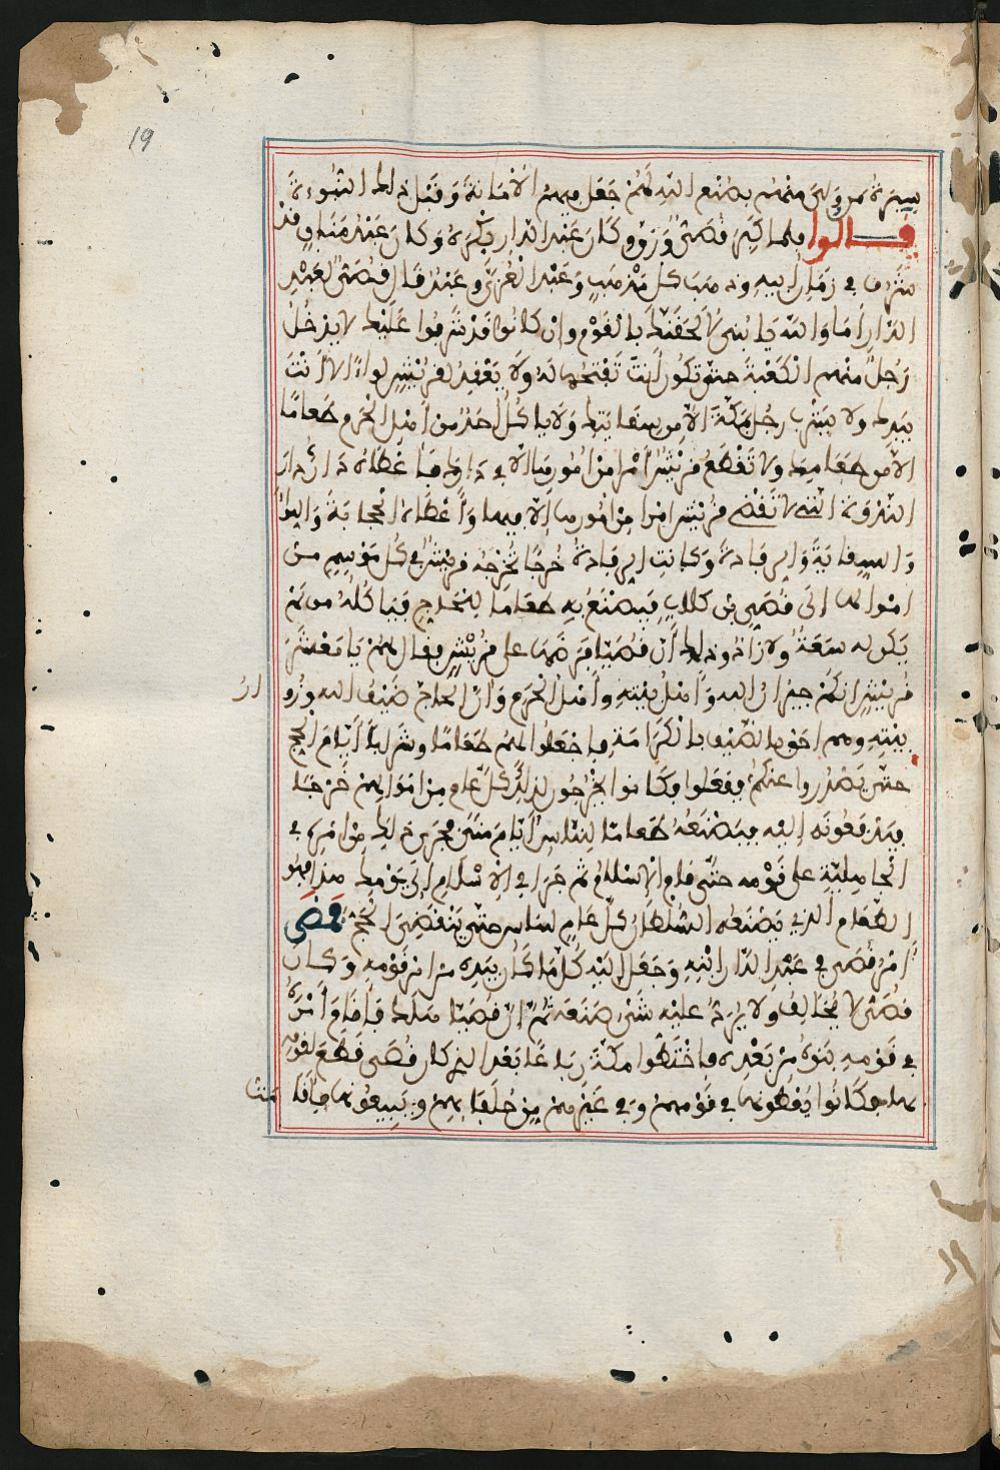 19
سيرة من ولي منهم بصنع الله لهم جعل فيهم الأمانة وقبل ذلك النبوءة
قالوا فلما كبر قصي ورق وكان عبد الدار بكره وكان عبد مناف قد
شرف في زمان أبيه وذهب كل مذهب وعبد العزى وعبد قال قصي لعبد
الدار أما والله يا بني لألحقنك بالقوم وإن كانوا قد شرفوا عليك لا يدخل
رجل منهم الكعبة حتى تكون أنت تفتحها له ولا يعقد لقريش لواء إلا أنت
بيدك ولا يشرب رجل بمكة إلا من سقايتك ولا يأكل أحد من أهل الحرم طعاما
إلا من طعامك ولا تقطع قريش أمرا من أمورها إلا في دارك فأعطاه داره دار
الندوة التي لا تقضي قريش أمرا من أمورها إلا فيها وأعطاه الحجابة واللواء
والسقاية والرفادة وكانت الرفادة خرجا تخرجه قريش في كل موسم من
أموالها إلى قصي بن كلاب فيصنع به طعاما للحاج فيأكله من لم
يكن له سعة ولا زاد وذلك أن قصيا فرضها على قريش فقال لهم يا معشر
قريش إنكم جيران الله وأهل بيته وأهل الحرم وإن الحاج ضيف الله وزوار
بيته وهم أحق الضيف بالكرامة فاجعلوا لهم طعاما وشرابا أيام الحج
حتى يصدروا عنكم ففعلوا فكانوا يخرجون لذلك كل عام من أموالهم خرجا
فيدفعونه إليه فيصنعه طعاما للناس أيام منى فجرى ذلك من أمره في
الجاهلية على قومه حتى قام الإسلام ثم جرى في الإسلام إلى يومك هذا فهو
الطعام الذي يصنعه السلطان كل عام للناس حتى ينقضي الحج فمضى
أمر قصي في عبد الدار ابنه وجعل إليه كل ما كان بيده من أمر قومه وكان
قصي لا يخالف ولا يرد عليه شيء صنعه ثم إن قصيا هلك فأقام أمره
في قومه بنوه من بعده فاختطوا مكة رباعا بعد الذي كان قصي قطع لقومه
بها فكانوا يقطعونها في قومهم وفي غيرهم من حلفائهم ويبيعونها فأقامت